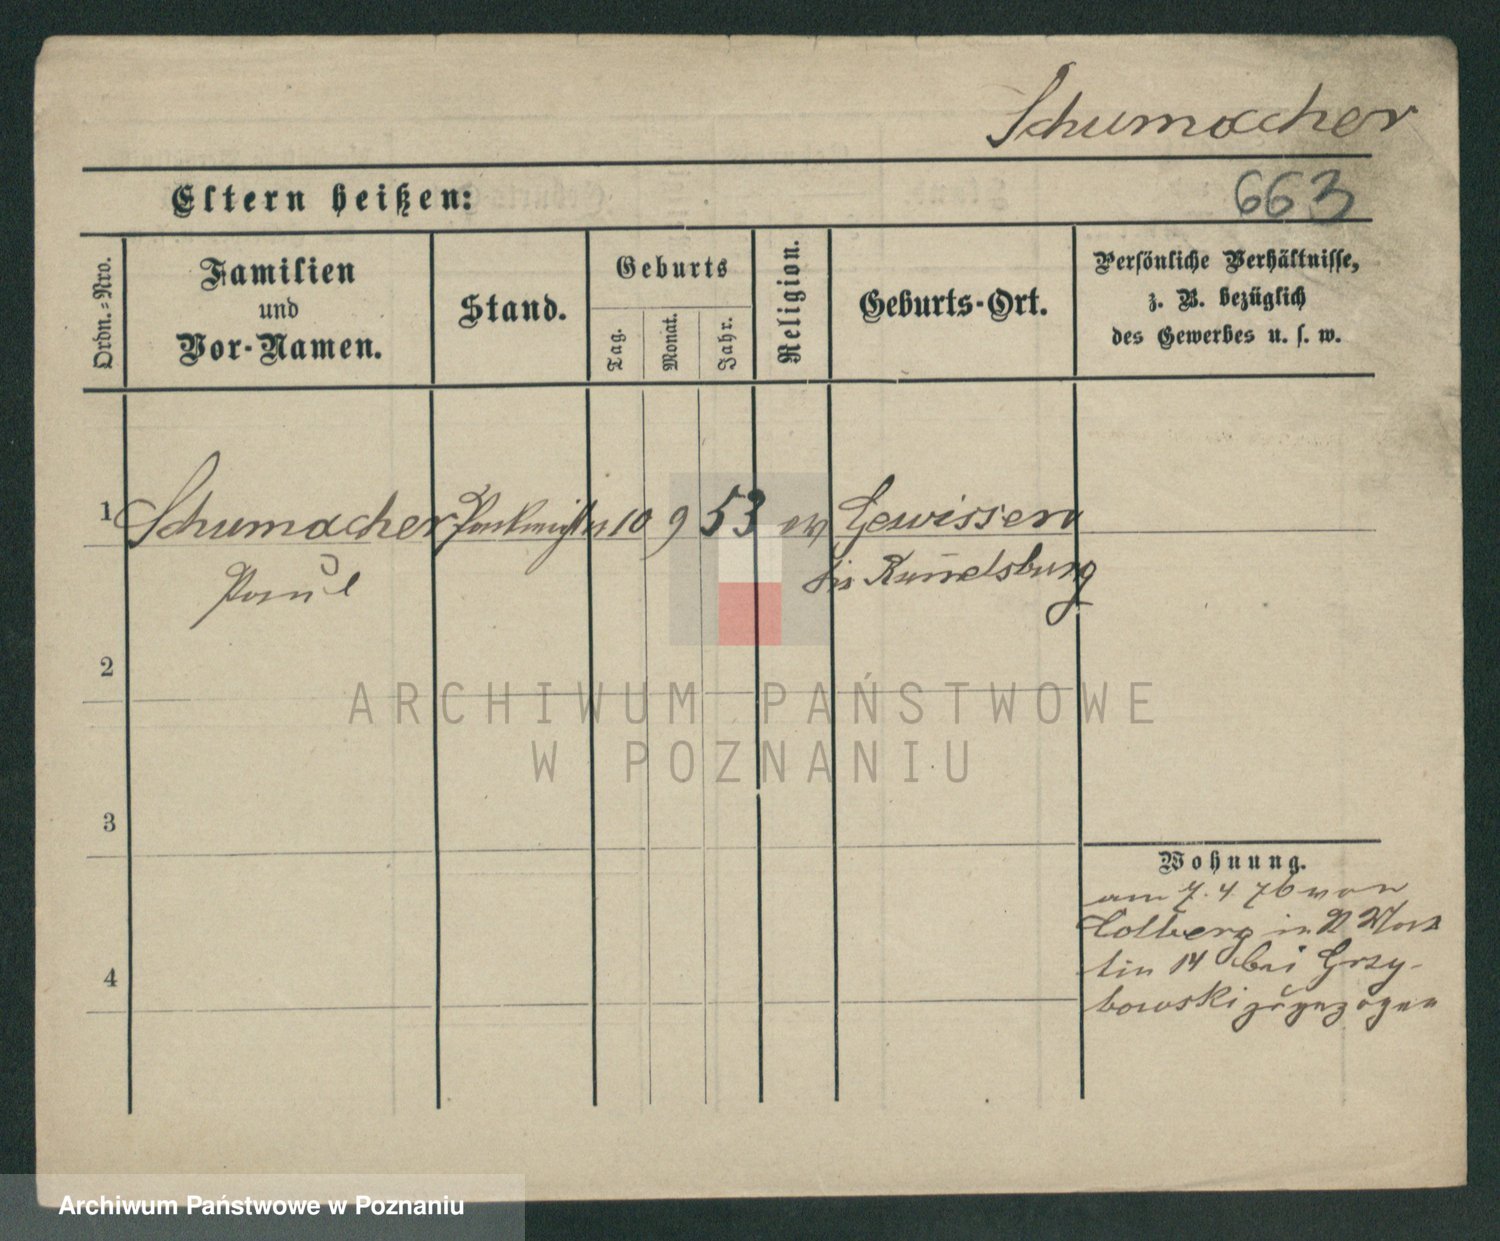 Schumacher
Eltern heißen:
663
Ordn.-Nro.
Familien
und
Vor-Namen.
Stand.
Geburts
Tag.
Monat.
Jahr.
Religion.
Geburts-Ort.
Persönliche Verhältnisse,
z. B. bezüglich
des Gewerbes u. s. w.
1 Schumacher 10 9 53 ev Gewissen
Paul
2
ARCHIWUM PAŃSTWOWE
W POZNANIU
3
Wohnung.
am 7. 4. 76 von
Colberg in
tin 14 bei Grzy-
bowski zugezogen
4
Archiwum Państwowe w Poznaniu